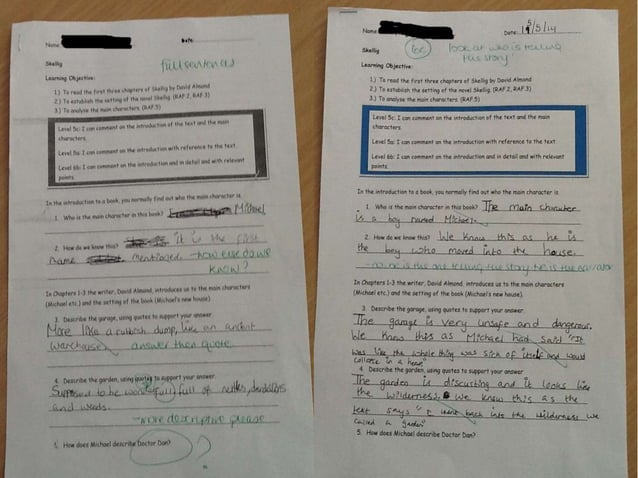 Name
Date:
Skellig
full sentences
Learning Objective:
1.) To read the first three chapters of Skellig by David Almond
2.) To establish the setting of the novel Skellig. (RAF 2, RAF 3)
3.) To analyse the main characters. (RAF 5)
Level 5c: I can comment on the introduction of the text and the main
characters.
Level 5a: I can comment on the introduction with reference to the text.
Level 6b: I can comment on the introduction and in detail and with relevant
points.
In the introduction to a book, you normally find out who the main character is.
1. Who is the main character in this book? Michael
2. How do we know this? it is the first
name mentioned. - how else do we
know?
In Chapters 1-3 the writer, David Almond, introduces us to the main characters
(Michael etc.) and the setting of the book (Michael's new house).
3. Describe the garage, using quotes to support your answer.
More like a rubbish dump, like an ancient
warehouse, answer then quote.
4. Describe the garden, using quotes to support your answer.
Supposed to be wonderful, full of nettles, dandelions
and weeds.
- more descriptive please
5. How does Michael describe Doctor Dan? ?
Name
Date: 15/5/14
Skellig
look at who is telling
the story
Learning Objective:
1.) To read the first three chapters of Skellig by David Almond
2.) To establish the setting of the novel Skellig. (RAF 2, RAF 3)
3.) To analyse the main characters. (RAF 5)
Level 5c: I can comment on the introduction of the text and the main
characters.
Level 5a: I can comment on the introduction with reference to the text.
Level 6b: I can comment on the introduction and in detail and with relevant
points.
In the introduction to a book, you normally find out who the main character is.
1. Who is the main character in this book? The main character
is a boy named Michael.
2. How do we know this? We know this as he is
the boy who moved into the house.
he is the one telling the story he is the narrator
In Chapters 1-3 the writer, David Almond, introduces us to the main characters
(Michael etc.) and the setting of the book (Michael's new house).
3. Describe the garage, using quotes to support your answer.
The garage is very unsafe and dangerous.
We know this as Michael had said "It
was like the whole thing was sick of itself and would
collapse in a heap"
4. Describe the garden, using quotes to support your answer.
The garden is discusting and it looks like
the wilderness. We know this as the
text says "I went back into the wilderness we
called a garden"
5. How does Michael describe Doctor Dan?